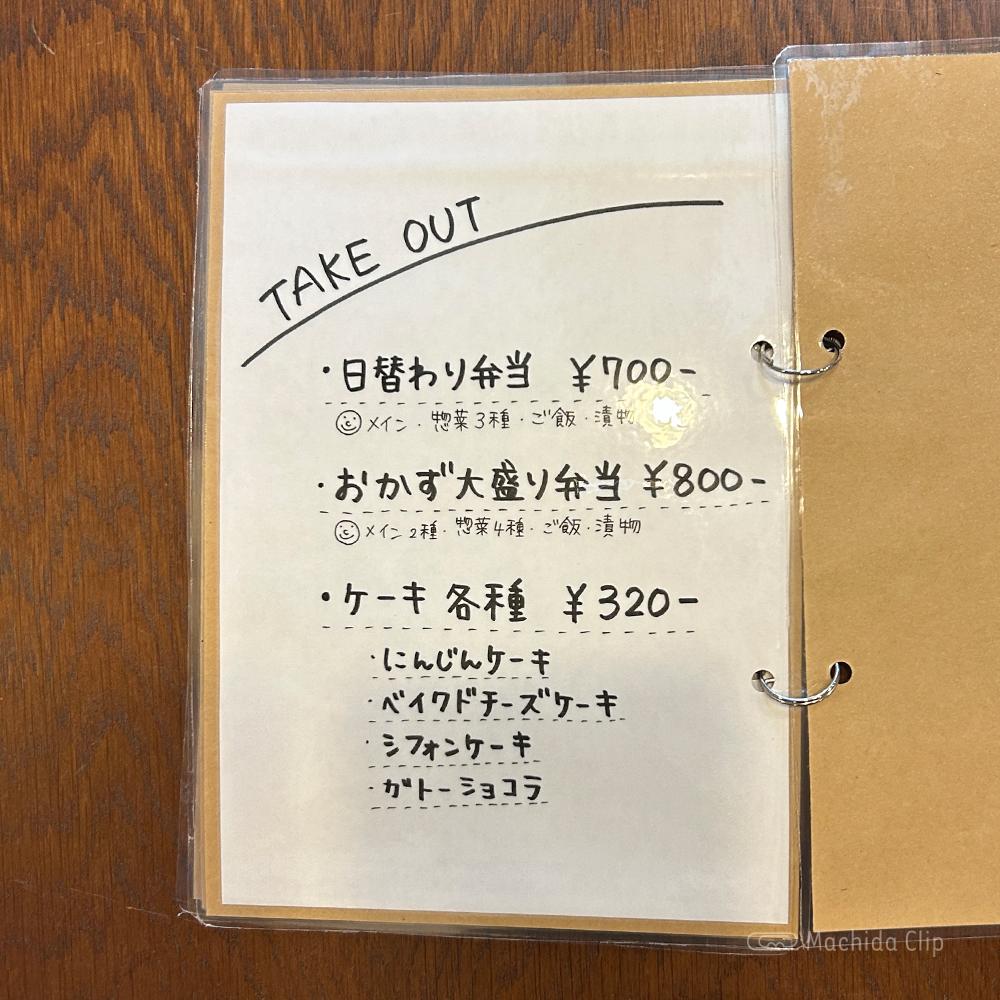 TAKE OUT
・日替わり弁当 ¥700-
メイン・惣菜3種・ご飯・漬物
・おかず大盛り弁当 ¥800-
メイン2種・惣菜4種・ご飯・漬物
・ケーキ各種 ¥320-
・にんじんケーキ
・ベイクドチーズケーキ
・シフォンケーキ
・ガトーショコラ
Machida Clip